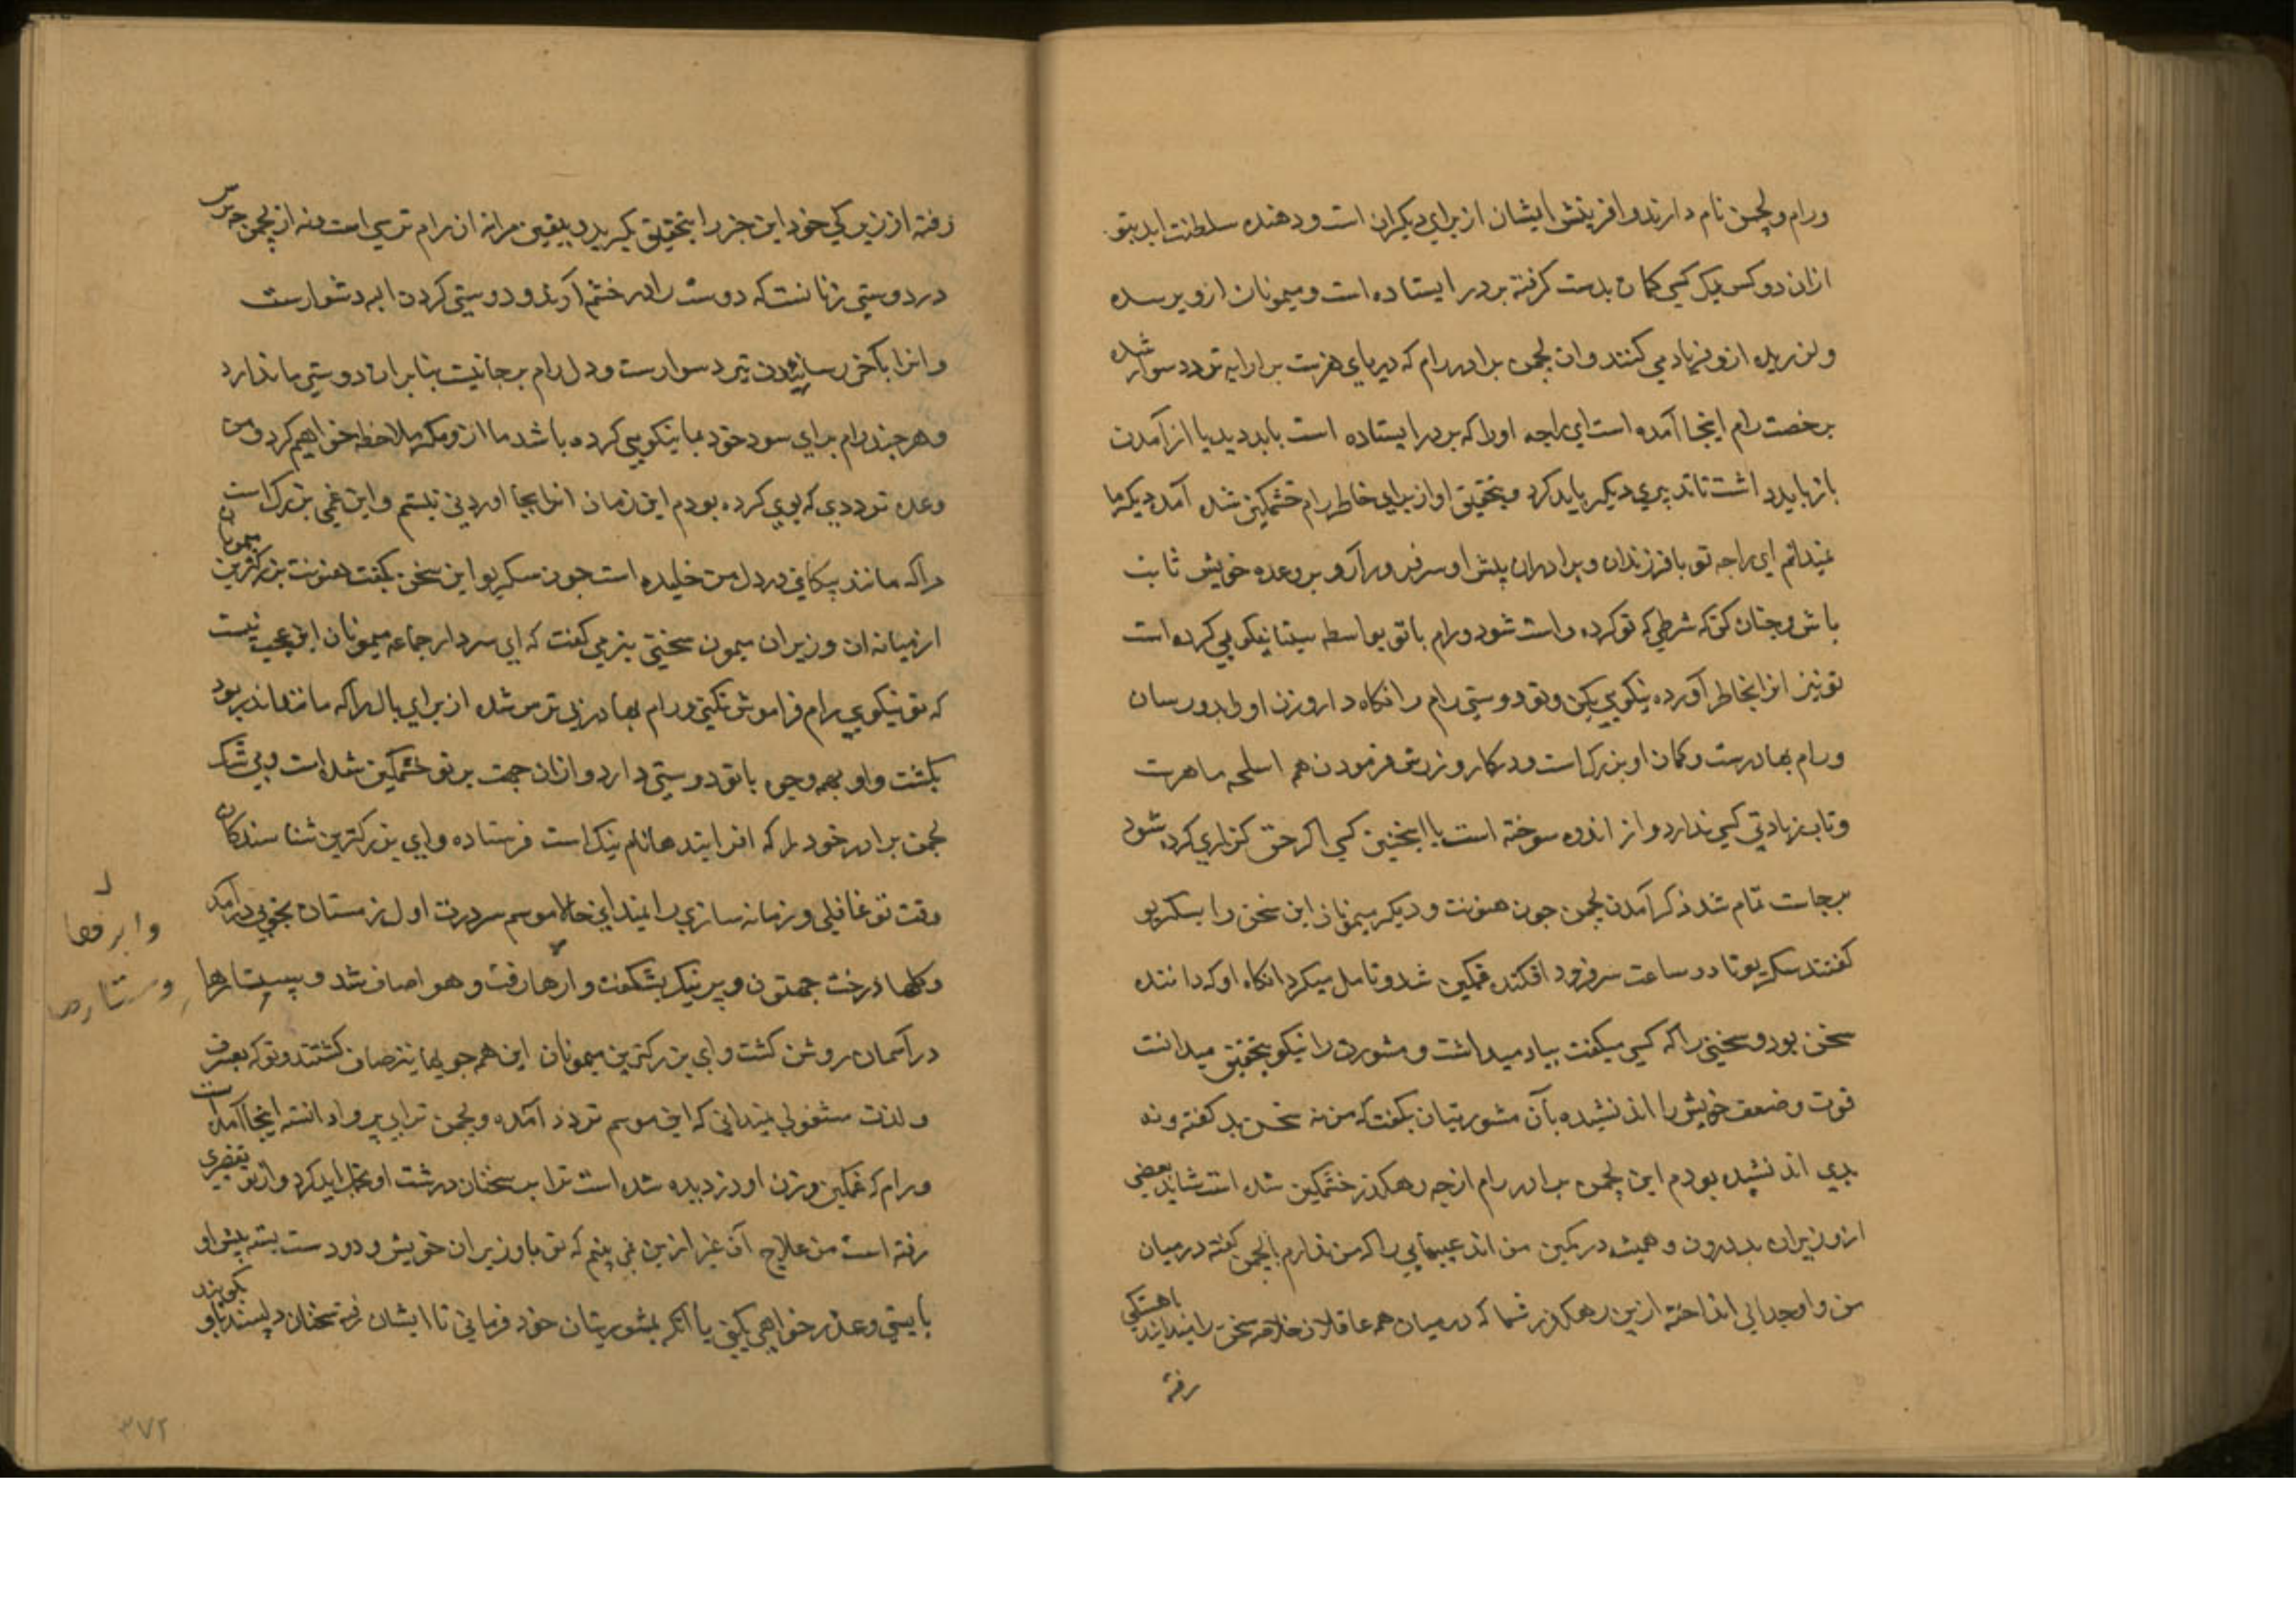 ورام و لچمن نام دارند و افرینش ایشان از برای دیکران است و دهنده سلطنت اند بتو
ازان دو کس یک کسی کمان بدست کرفته بر در ایستاده است و میمونان ازو ترسیده
و لرزیده ازو فریاد می کنند و ان لچمن برادر رام که بر ارابه تردد سوار شده
برخصت رام اینجا آمده است ای راجه اورا که بر در ایستاده است باید دید یا از آمدن
باز باید داشت تا تدبیری دیکر باید کرد و بتحقیق او از برای خاطر رام خشمکین شده آمده دیکر ما
نمیدانم ای راجه تو با فرزندان و برادران پیش او سر فرور آر و بر وعده خویش ثابت
باش و چنان کن که شرطی که تو کرده راست شود و رام با تو بواسطه سیتا نیکویی کرده است
تو نیز انرا بخاطر آورده نیکویی بکن و تو دوستی رام را نکاه دار و زن او را بدو رسان
ورام بهادرست و کمان او بزرک است و در کار ورزش فرمودن هم اسلحه ماهرست
و تاب زیادتی کسی ندارد و از اندوه سوخته است با اینچنین کسی اکر حق کزاری کرده شود
برجاست تمام شد ذکر آمدن لچمن چون هنونت و دیکر میمونان این سخن را بسکریو
کفتند سکریو تا دو ساعت سر فرود افکنده غمکین شد و تامل میکرد انکاه او که داننده
سخن بود و سخنی را که کسی میکفت بیاد میداشت و مشورت را نیکو بتحقیق میدانست
قوت و ضعف خویش را اندیشیده بآن مشورتیان بکفت که من نه سخن بد کفته و نه
بدی اندیشیده بودم این لچمن برادر رام از چه رهکذر خشمکین شده است شاید بعضی
از وزیران بد درون و همیشه در کمین من اند عیبهایی را که من ندارم بلچمن کفته در میان
من و او جدایی انداخته ازین رهکذر شما که در میان همه عاقلان خلاصه سخن را میدانید باهستکی
رفته
رفته از زیرکی خود این خبر را بتحقیق بکیرید و بیقین مرا نه از رام ترسی است و نه از لچمن ترس
در دوستی زیانست که دوست را در خشم آرند و دوستی کردن ابه دشوارست
و انرا بآخر رسانیدن دشوارست و دل رام برجا نیست بنابران دوستی ما ندارد
و هر چند رام برای سود خود بما نیکویی کرده باشد ما ازو مکر ملاحظه خواهیم کرد و من
وعده ترددی که بوی کرده بودم این زمان انرا بجا اوردنی نیستم و این غمی بزرک است
مرا که مانند پیکانی در دل من خلیده است چون سکریو این سخن بکفت هنونت بزرکترین میمونان
از میانه ان وزیران میمون سخنی بنرمی کفت که ای سردار جماعه میمونان این عجب نیست
که تو نیکویی رام فراموش نکنی و رام بهادر بی ترس شده از برای بال را که مانند اندر بود
بکشت و او بهمه وجوه با تو دوستی دارد و ازان جهت بر تو خشمکین شده است و بی شک
لچمن برادر خود را که افزاینده نام نیک است فرستاده و ای بزرکترین شناسندکان
وقت تو غافلی و زمانه سازی را نمیدانی حالا موسم سردرت اول زمستان بخوبی درآمده
و کلها درخت چهتون و پرنیک بشکفت و ابرها رفت و هوا صاف شد و ستارها
وابر رفعا
وستارها
در آسمان روشن کشت و ای بزرکترین میمونان این همه جویها نیز صاف کشتند و تو که بعیش
و لذت مشغولی نمیدانی که این موسم تردد آمده و لچمن ترا بی پروا دانسته اینجا آمده است
و رام که غمکین و زن او دزدیده شده است ترا سخنان درشت او تحمل باید کرد و از تو تقصیری
رفته است من علاج آن غیر ازین نمی بینم که تو با وزیران خویش و دو دست بسته پیش او
بایستی و عذر خواهی بکنی یا آنکه بمشورتیان خود فرمایی تا ایشان نرم سخنان دلپسند باو بکویند
۳۷۲